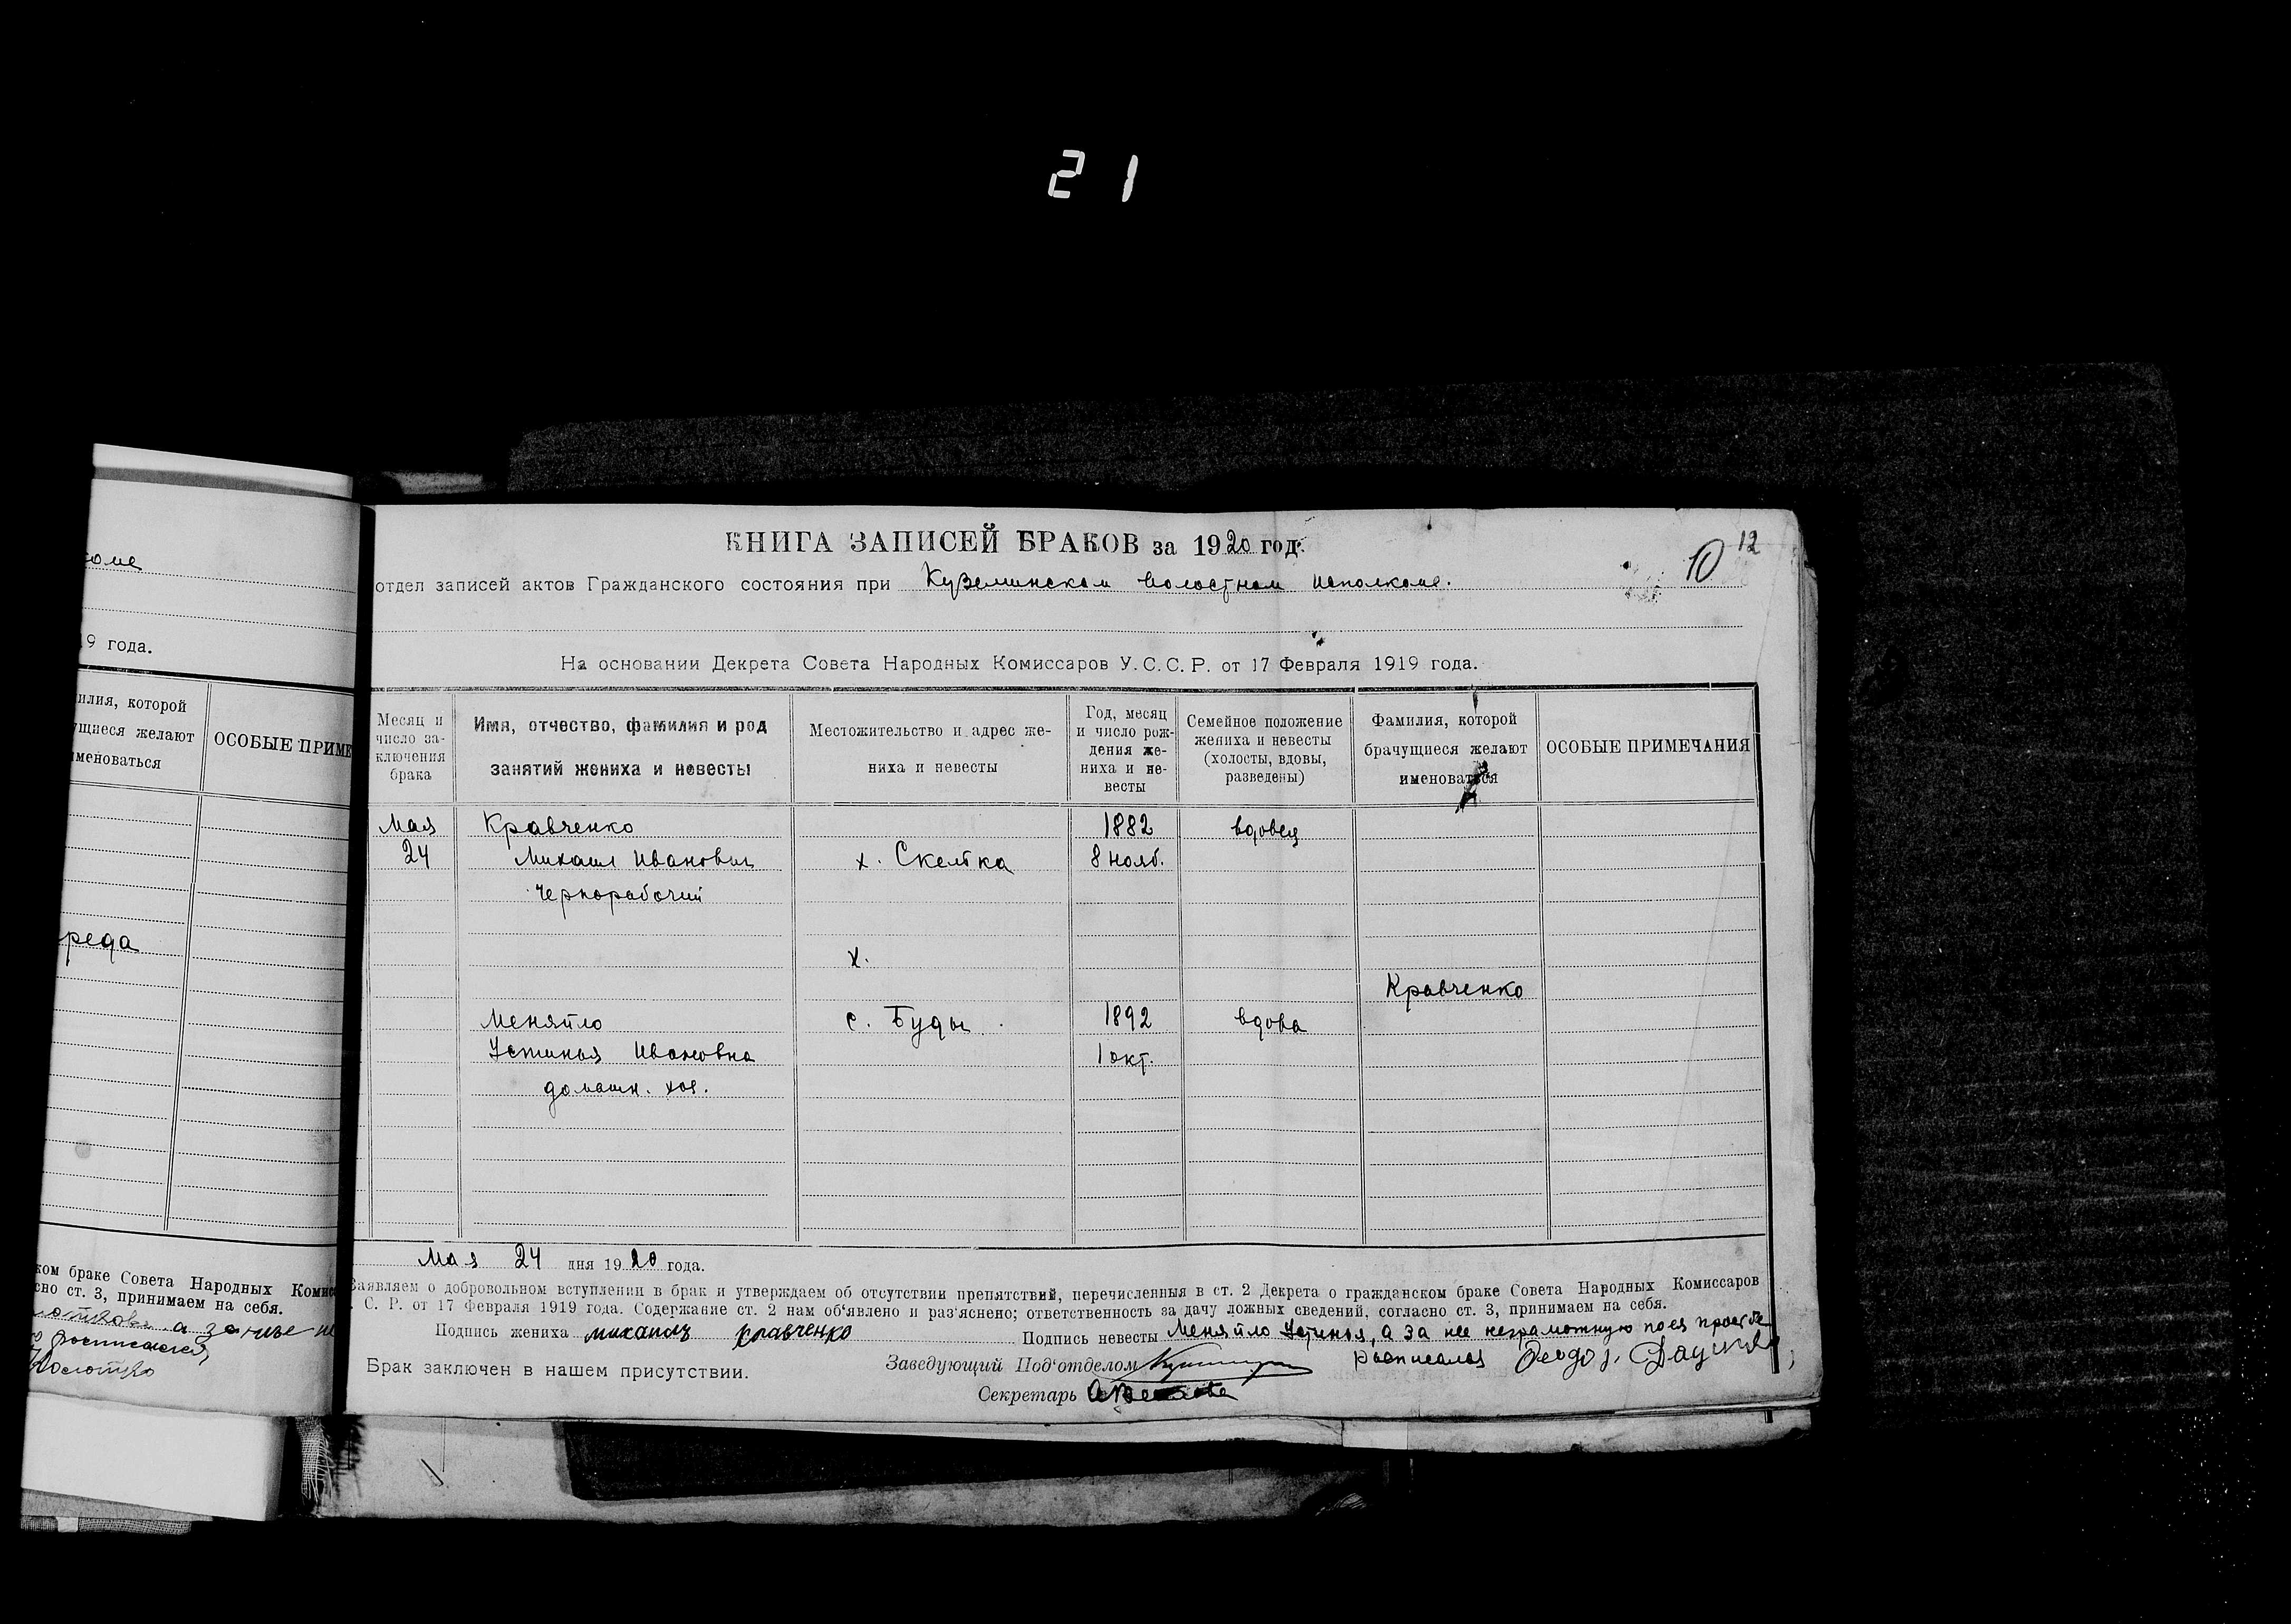 21
КНИГА ЗАПИСЕЙ БРАКОВ за 1920 год.
12
10
отдел записей актов Гражданского состояния при Куземинском волостном исполкоме.
На основании Декрета Совета Народных Комиссаров У.С.С.Р. от 17 Февраля 1919 года.
Месяц и число заключения брака
Имя, отчество, фамилия и род занятий жениха и невесты
Местожительство и адрес жениха и невесты
Год, месяц и число рождения жениха и невесты
Семейное положение жениха и невесты (холосты, вдовы, разведены)
Фамилия, которой брачущиеся желают именоваться
ОСОБЫЕ ПРИМЕЧАНИЯ
Мая Кравченко 1882 вдовец
24 Михаил Иванович х. Скелька 8 нояб.
чернорабочий
х.
Кравченко
Меняйло с. Буды 1892 вдова
Устинья Ивановна 1 окт.
домашн. хоз.
Мая 24 дня 1920 года.
Заявляем о добровольном вступлении в брак и утверждаем об отсутствии препятствий, перечисленных в ст. 2 Декрета о гражданском браке Совета Народных Комиссаров
С. Р. от 17 Февраля 1919 года. Содержание ст. 2 нам об'явлено и раз'яснено; ответственность за дачу ложных сведений, согласно ст. 3, принимаем на себя.
Подпись жениха михаилъ кравченко Подпись невесты Меняйло Устинья, а за нее неграмотную по ея просьбе
расписался Феодор
Брак заключен в нашем присутствии. Заведующий Под'отделом
Секретарь
коме
19 года.
илия, которой
ущиеся желают
именоваться
ОСОБЫЕ ПРИМЕ
реда
ком браке Совета Народных Комисс
сно ст. 3, принимаем на себя.